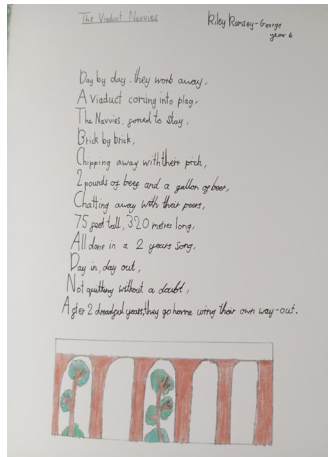 The Viaduct Navvies
Riley Ramsey-George
year 6
Day by day, they work away,
A viaduct coming into play,
The Navvies, joined to stay.
Brick by brick,
Chipping away with their pick,
2 pounds of beef and a gallon of beer,
Chatting away with their peers,
75 foot tall, 320 metres long,
All done in a 2 years song.
Day in, day out,
Not quitting without a doubt,
After 2 dreadful years, they go home using their own way-out.